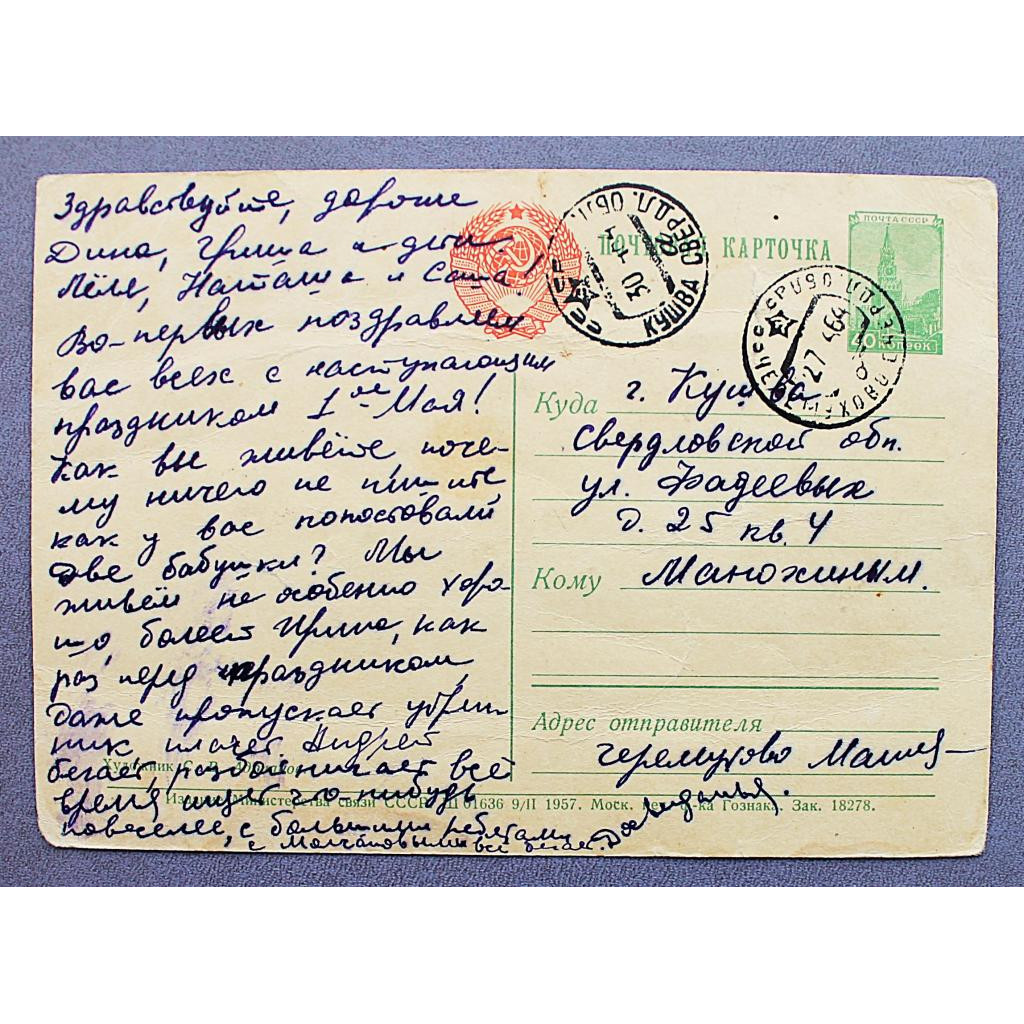 Здравствуйте, дорогие
Дина, Гриша и дети
Лёля, Наташа и Саша!
Во-первых поздравляем
вас всех с наступающим
праздником 1ое Мая!
Как вы живёте поче-
му ничего не пишите
как у вас
две бабушки? Мы
живём не особенно хоро-
шо болеет Ирина, как
раз перед праздником,
даже пропускает утрен-
ник плачет. Андрей
бегает, разбойничает всё
время ищет что нибудь
повеселее, с большими ребятами
с Молчановыми всё бегает. До свиданья.
ПОЧТОВАЯ КАРТОЧКА
ПОЧТА СССР
40 КОПЕЕК
СССР
КУШВА СВЕРДЛ. ОБЛ.
30 4
СССР
27 4 64
Куда г. Кушва
Свердловской обл.
ул. Фадеевых
д. 25 кв. 4
Кому Маножиным.
Адрес отправителя
Черемухово
Художник С.
Издание Министерства связи СССР. Ш 01636 9/II 1957. Моск. печ. ф-ка Гознака. Зак. 18278.